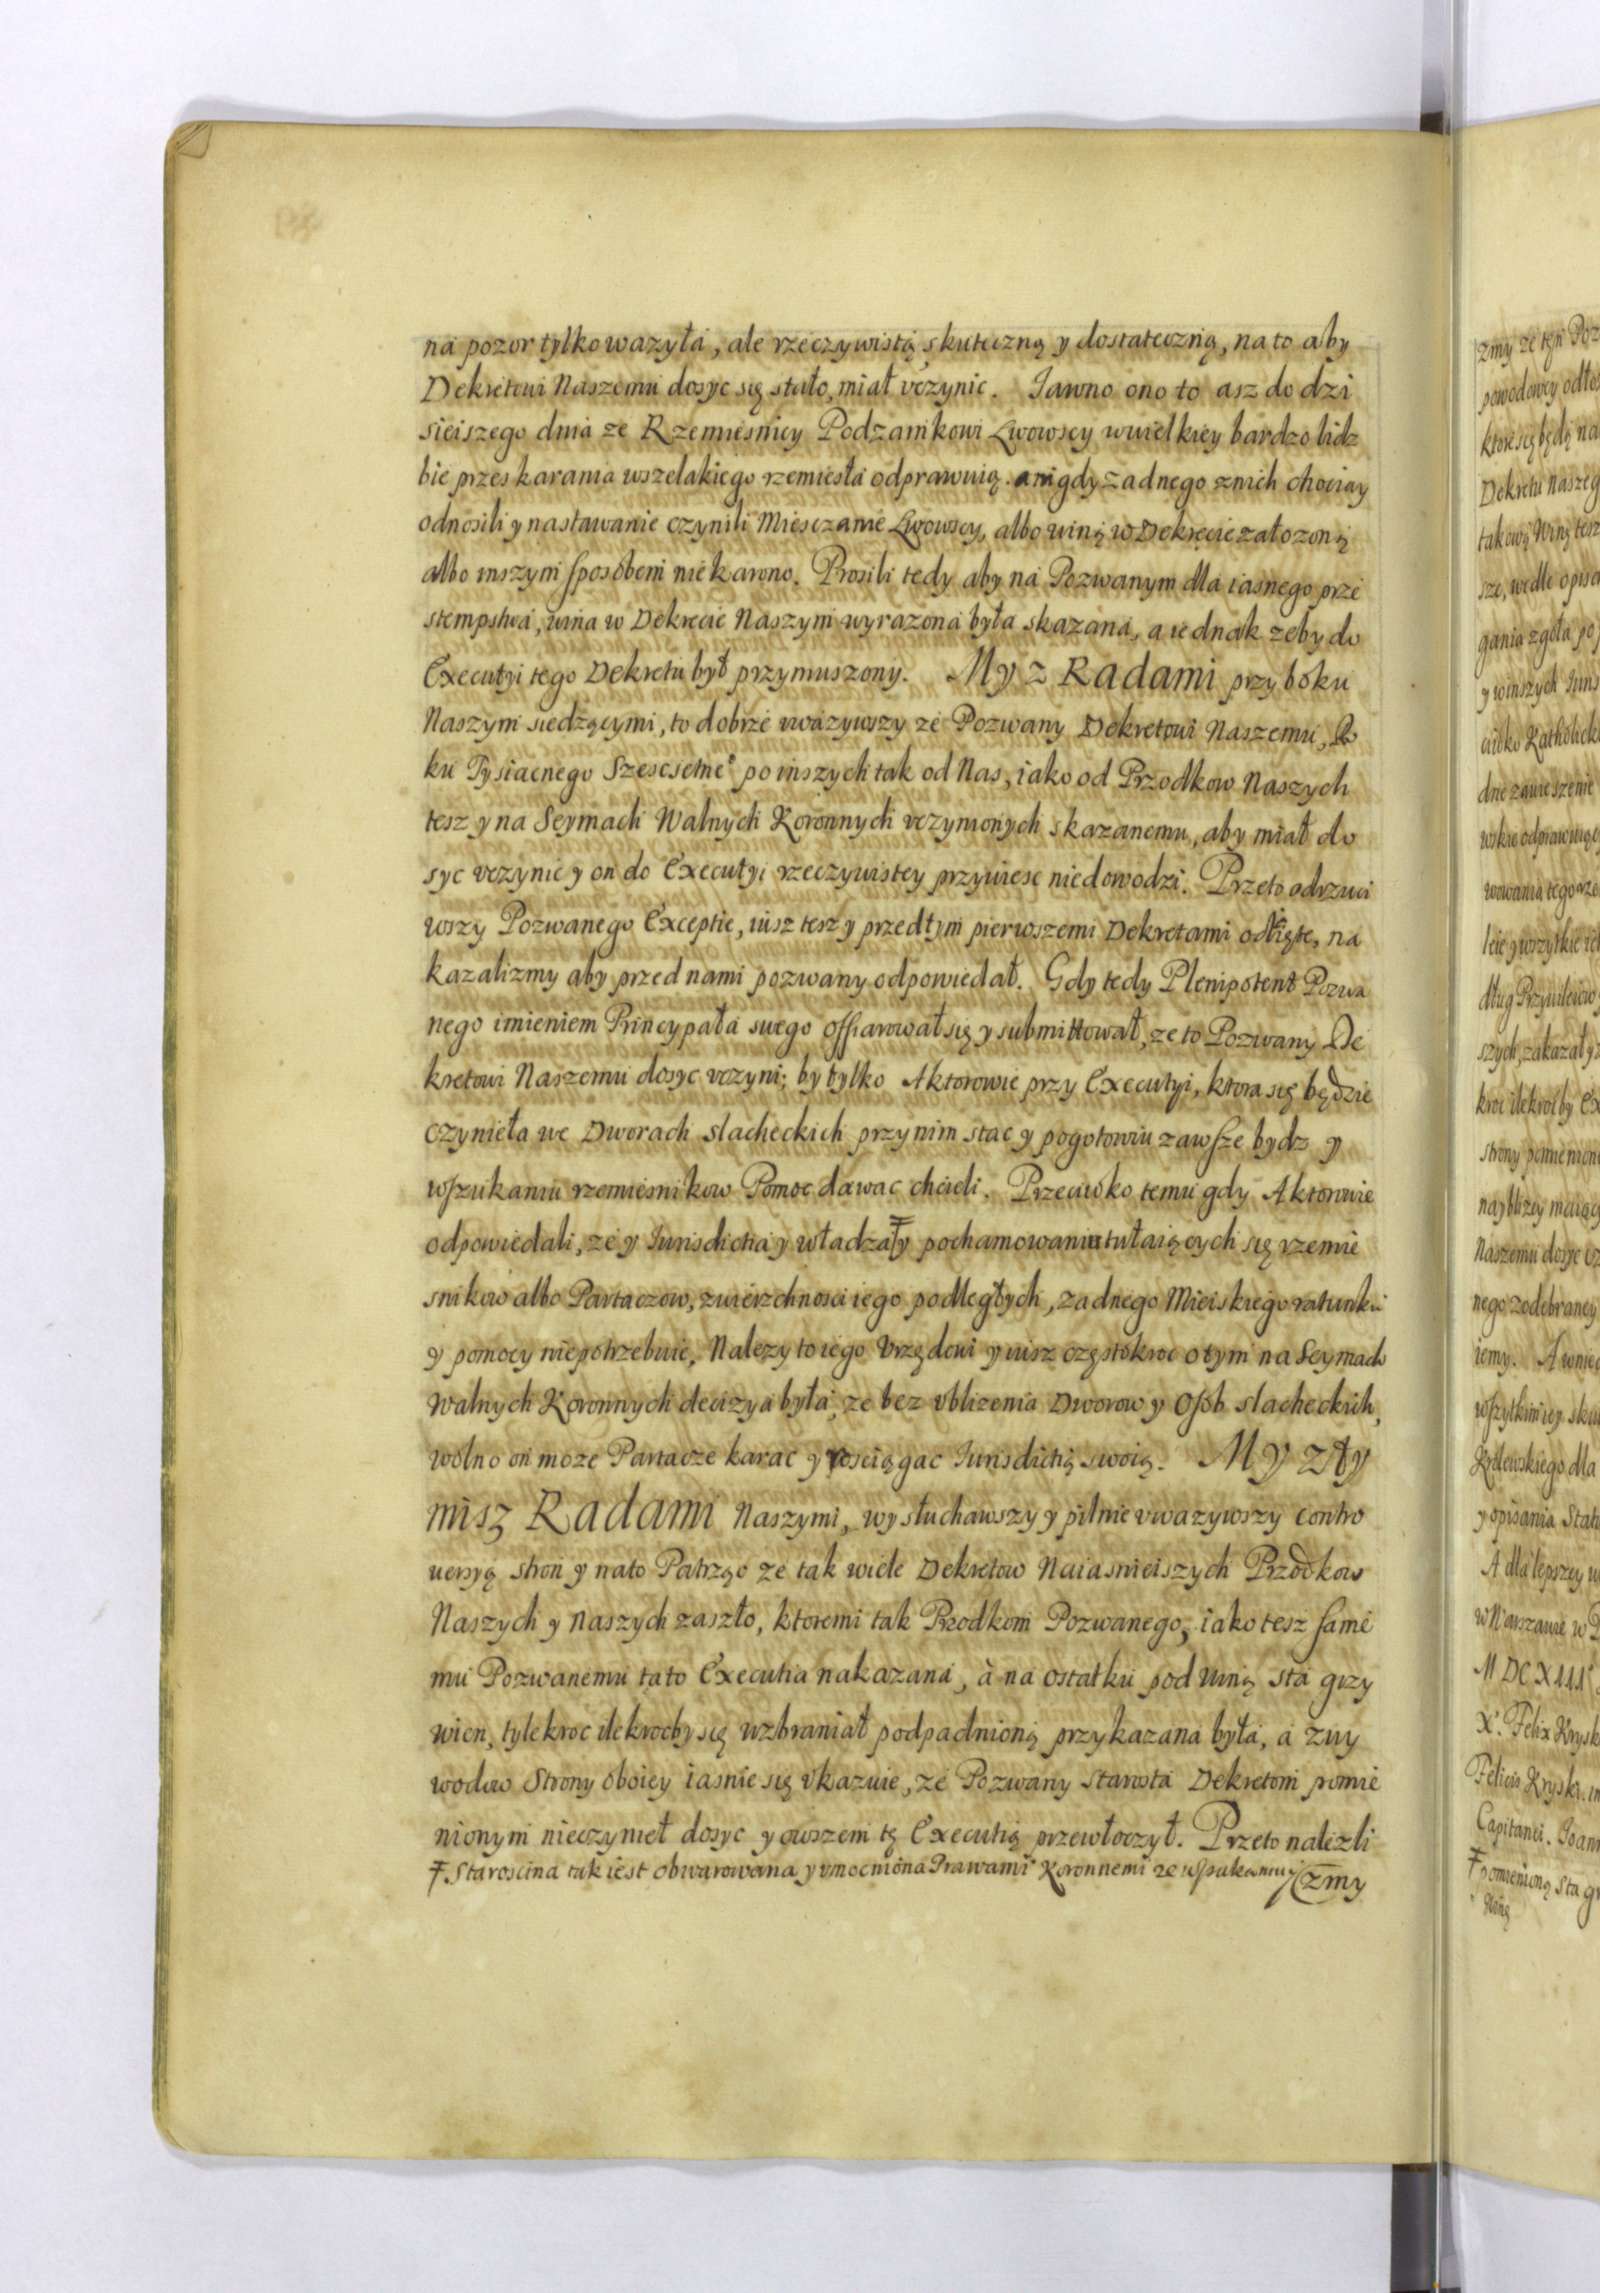 na pozor tylko wazyłá, ale rzeczywistą skuteczną y dostateczną, na to aby
Dekretowi Naszemu dosyc się stało, miał vczynic. Iawno ono to asz do dzi
sieiszego dnia ze Rzemiesnicy Podzamkowi Lwowscy wwielkiey bardzo lidz
bie przes karania wszelakiego rzemiesła odprawuią. a nigdy zadnego znich chociay
odnosili y nastawanie czynili Miesczanie Lwowscy, albo winą w Dekrecie załozoną
albo inszym sposobem nie karano. Prosili tedy aby ná Pozwanym dlá iasnego prze
stempstwá, winá w Dekrecie Naszym wyrazoná była skazaná, a iednak zeby do
Executyi tego Dekretu był przymuszony. My z Radami przy boku
Naszym siedzącymi, to dobrze vwázywszy ze Pozwany Dekretowi Naszemu, Ro
ku Tysiacnego Szescsetneº po inszych tak od Nas, iako od Przodkow Naszych
tesz y na Seymach Walnych Koronnych vczynionych skazánemu, aby miał do
syc vczynic y on do Executyi rzeczywistey przywiesc niedowodzi. Przeto odrzuci
wszy Pozwanego Exceptie, iusz tesz y przedtym pierwszemi Dekretami odięte, na
kazalizmy aby przed nami pozwany odpowiedał. Gdy tedy Plenipotent Pozwa
nego imieniem Pryncypałá swego offiarował się y submittował, ze to Pozwany De
kretowi Naszemu dosyc vczyni; by tylko Aktorowie przy Executyi, ktora się będzie
czynieła we Dworach slacheckich przy nim stac y pogotowiu zawsze bydz y
wszukaniu rzemiesnikow Pomoc dawac chcieli. Przeciwko temu gdy Aktorowie
odpowiedali, ze y Iurisdictia y władza ŧ y pochamowaniu tułaiących się rzemie
snikow albo Partaczow, zwierzchnosci iego podległych, zadnego Mieiskiego ratunku
y pomocy niepotrzebuie, Nalezy to iego Vrzędowi y iusz częstokroc o tym na Seymach
Walnych Koronnych decizya byłá, ze bez vblizenia Dworow y Osob slacheckich,
wolno on moze Partacze karac y rosciągac Iurisdictią swoią. My z Ty
misz Radami Naszymi, wysłuchawszy y pilnie vwazywszy contro
uersyą stron y nato Patrząc ze tak wiele Dekretow Naiasnieiszych Przodkow
Naszych y naszych zaszło, ktoremi tak Przodkom Pozwanego, iako tesz same
mu Pozwanemu tá to Executia nakazaná, à na ostatku pod winą sta grzy
wien, tylekroc ilekrocby się wzbraniał podpadnioną przykazana byłá, a zwy
wodow Strony oboiey iasnie się vkazuie, ze Pozwany Starostá Dekretom pomie
nionym nieczynieł dosyc y owszem tę Executią przewłoczył. Przeto nalezli
ŧ Staroscina tak iest obwarowana y vmocniona Prawami Koronnemi ze wszukaniu
zmy